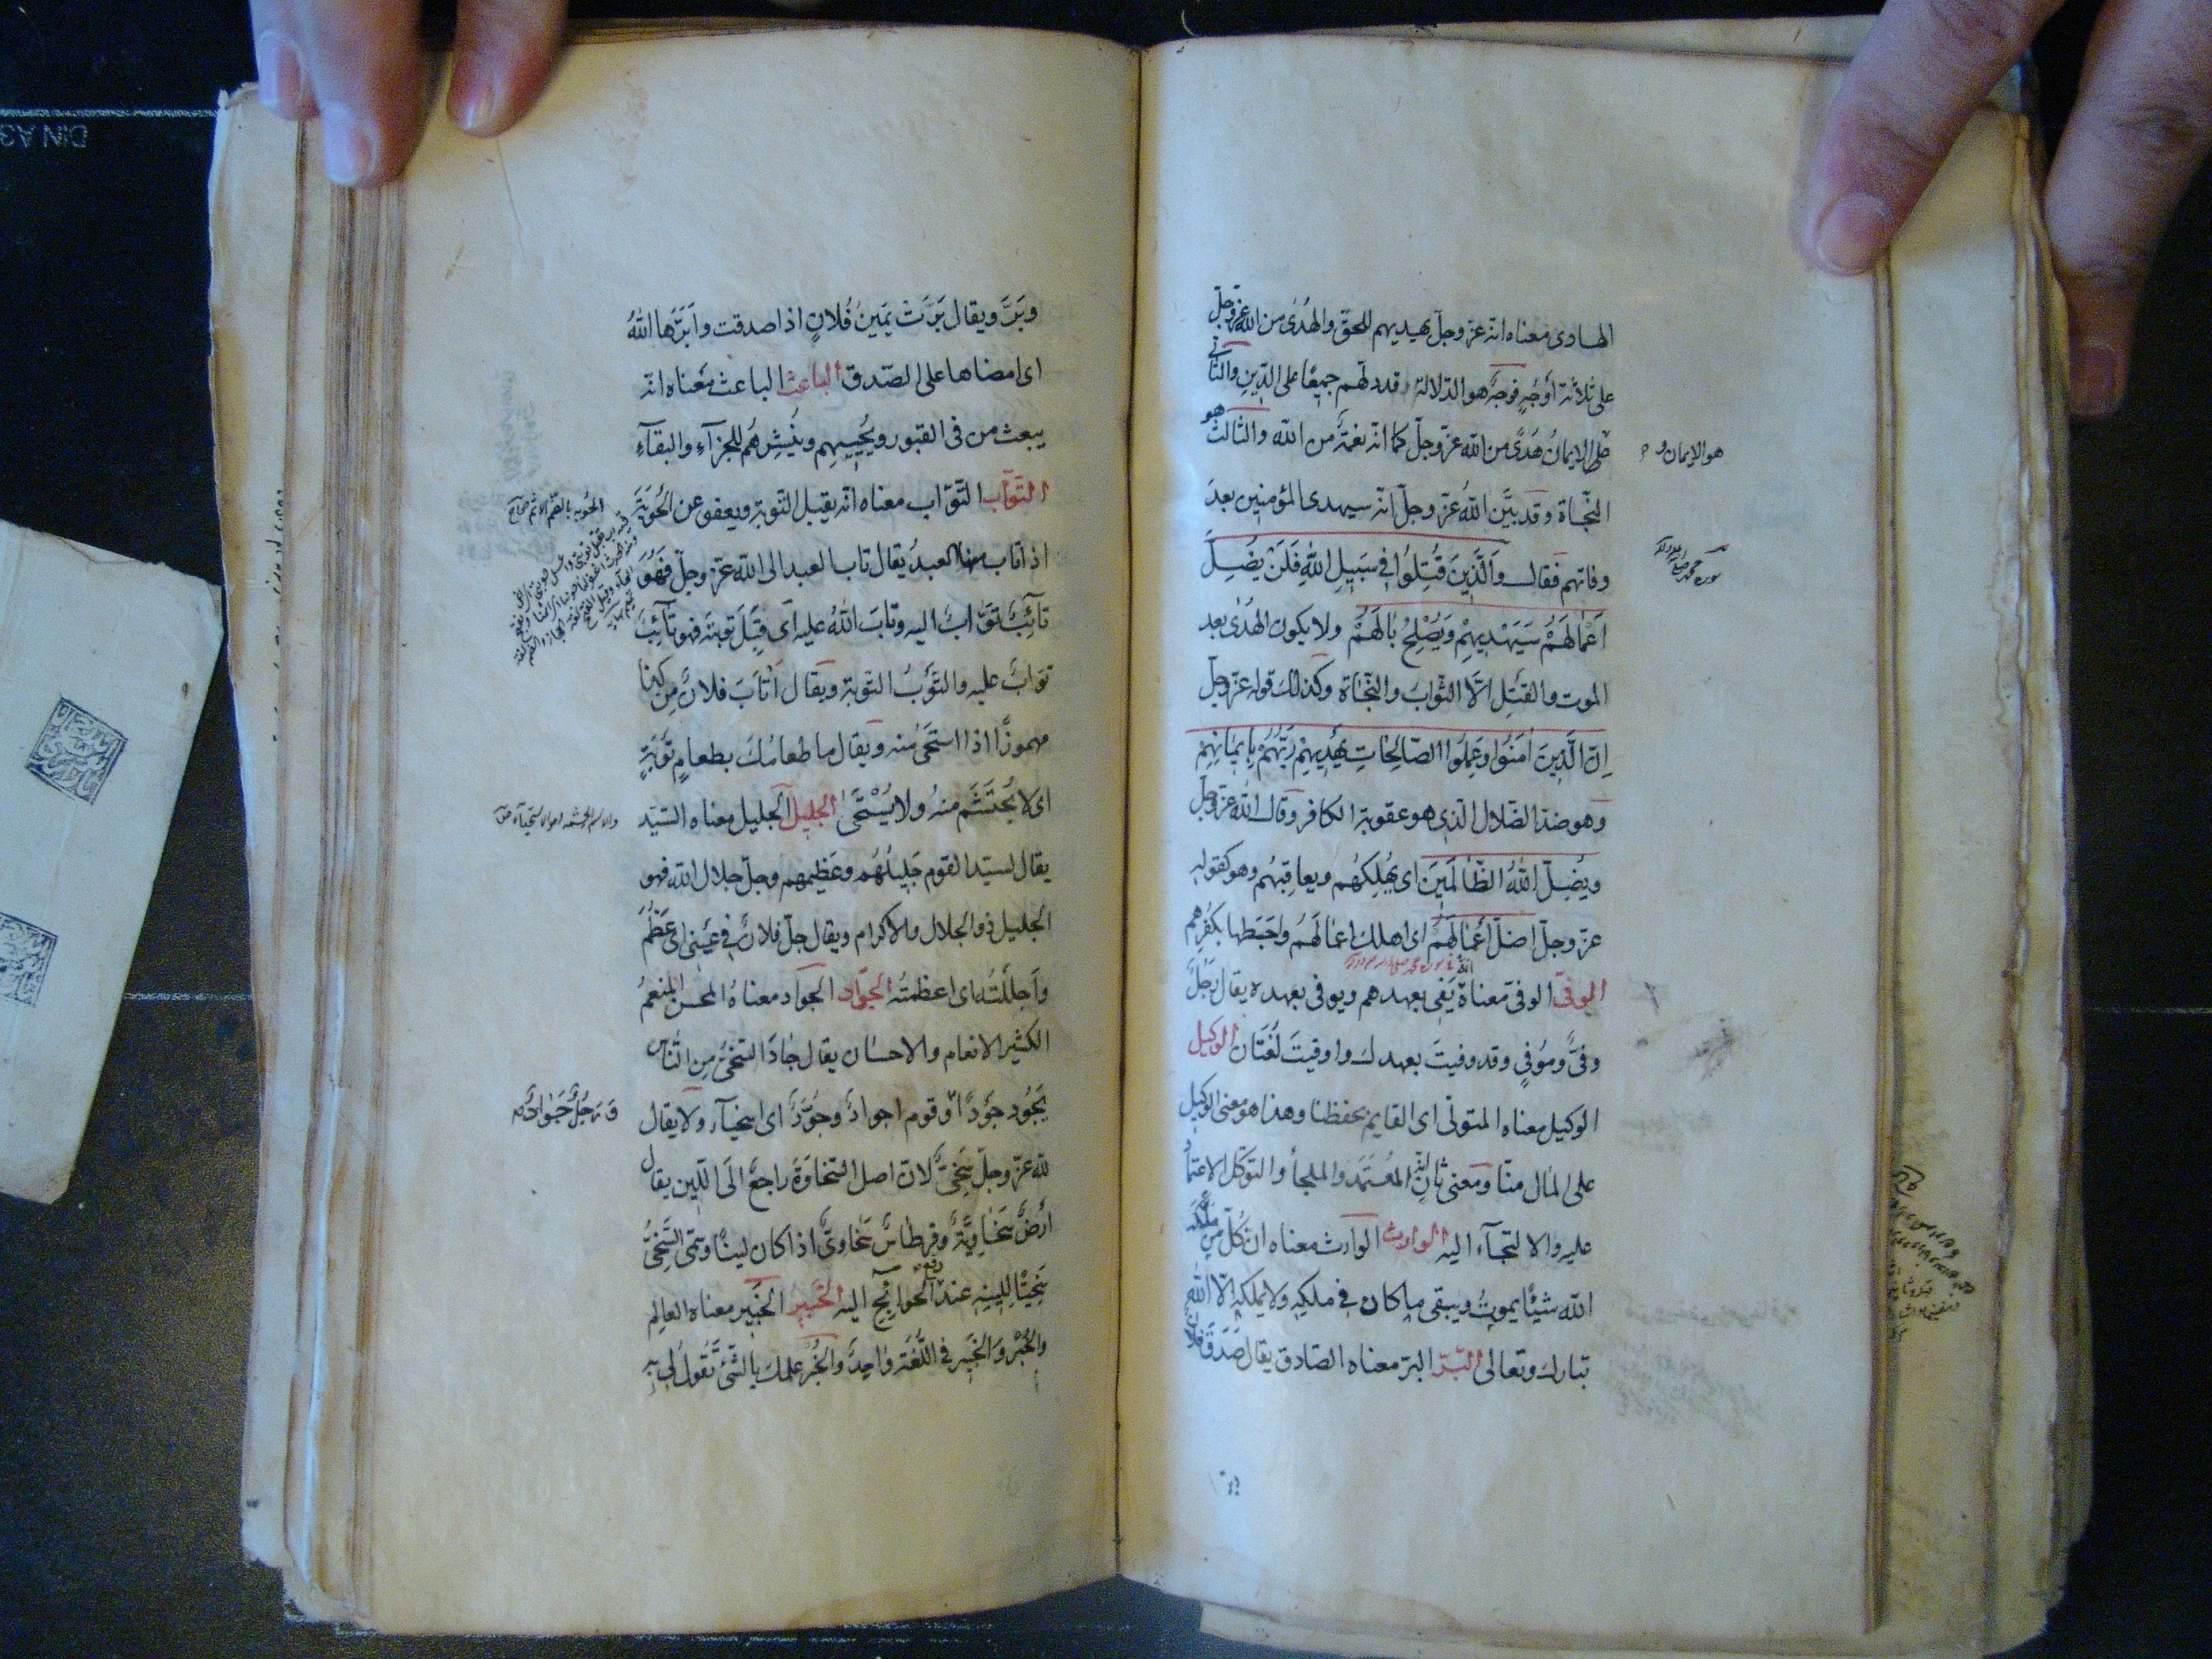 الهادى معناه انه عز وجل يهديهم للحق والهدى من الله عز وجل
على ثلاثة أوجه فوجه هو الدلالة قد دلهم جميعا على الدين والثانى
هو الإيمان و
الايمان هدى من الله عز وجل كما انه نعمة من الله والثالث هو
النجاة وقد بين الله عز وجل انه سيهدى المؤمنين بعد
وفاتهم فقال والذين قتلوا فى سبيل الله فلن يضل
سوره محمد
أعمالهم سيهديهم ويصلح بالهم ولا يكون الهدى بعد
الموت والقتل الا الثواب والنجاة وكذلك قوله عز وجل
ان الذين امنوا وعملوا الصالحات يهديهم ربهم بايمانهم
وهو ضد الضلال الذى هو عقوبة الكافر وقال الله عز وجل
ويضل الله الظالمين اى يهلكهم ويعاقبهم وهو كقوله
عز وجل اضل أعمالهم اى اهلك اعمالهم واحبطها بكفرهم
الوفى الوفى معناه انه يفى بعهدهم ويوفى بعهده يقال رجل
وفى وموفى وقد وفيت بعهدك واوفيت لغتان الوكيل
الوكيل معناه المتولى اى القايم بحفظنا وهذا هو معنى الوكيل
على المال منا ومعنى ثان انه المعتمد والملجأ والتوكل الاعتماد
عليه والالتجآء اليه الوارث الوارث معناه ان كل من ملكه
الله شيئا يموت ويبقى ما كان فى ملكه ولا يملكه الا الله
تبارك وتعالى البر البر معناه الصادق يقال صدق فلان
وبر ويقال برت يمين فلان اذا صدقت وابرها الله
اى امضاها على الصدق الباعث الباعث معناه انه
يبعث من فى القبور ويحييهم وينشرهم للجزآء والبقآء
التواب التواب معناه انه يقبل التوبة ويعفو عن الحوبة
الحوبة بالفتح الاثم
اذا تاب منها العبد يقال تاب العبد الى الله عز وجل فهو
تآئب تواب اليه وتاب الله عليه اى قبل توبته فهو تآئب
تواب عليه والتوب التوبة ويقال اتأب فلان من كذا
مهموزا اذا استحى منه ويقال ما طعامك بطعام تؤبة
اى لا يحتشم منه ولا يستحى الجليل الجليل معناه السيد
يقال لسيد القوم جليلهم وعظيمهم وجل جلال الله فهو
الجليل ذو الجلال والاكرام ويقال جل فلان فى عينى اى عظم
واجللته اى اعظمته الجواد الجواد معناه المحسن المنعم
الكثير الانعام والاحسان يقال جاد السخى من الناس
يجود جودا وقوم اجواد وجود اى اسخيآء ولا يقال
ورجل جواد
لله عز وجل سخى لان اصل السخاوة راجع الى اللين يقال
أرض سخاوية وقرطاس سخاوى اذا كان لينا وسمى السخى
سخيا للينه عند الحوآئج اليه الخبير الخبير معناه العالم
والخبر والخبير فى اللغة واحد والخبر علمك بالشئ تقول لى به